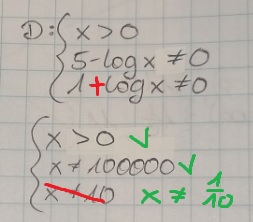 D: { x > 0
5 - log x ≠ 0
1 + log x ≠ 0
{ x > 0 ✓
x ≠ 100000 ✓
x ≠ 10 x ≠ 1/10